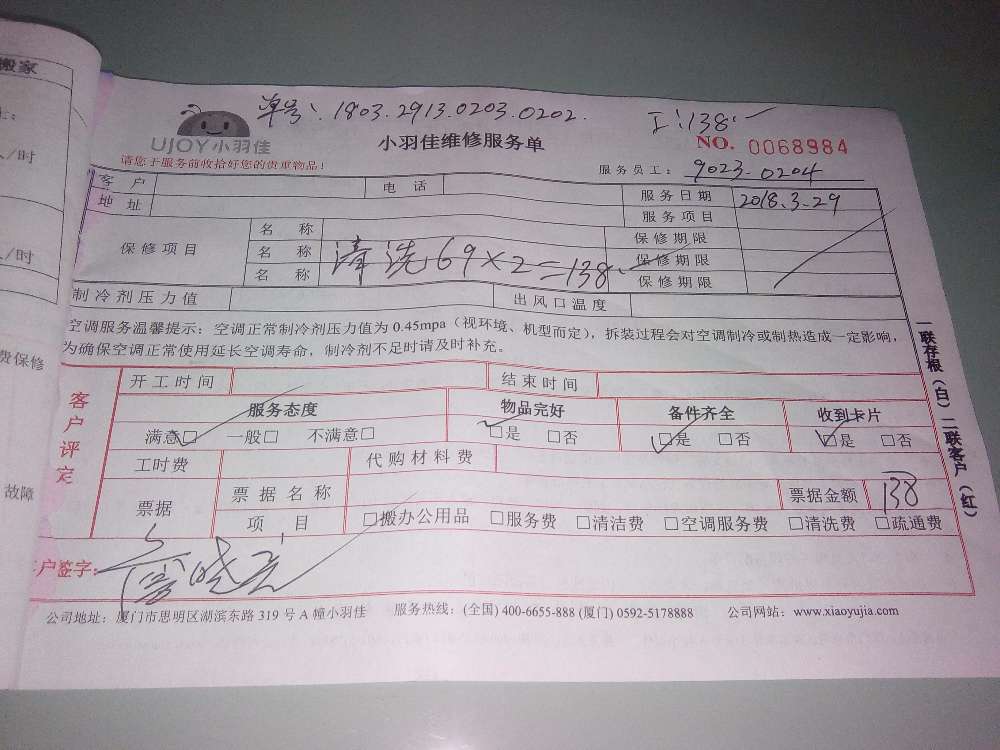 搬家
/时
/时
费保修
故障
单号：1803.2913.0203.0202.
工:138.
UJOY小羽佳
小羽佳维修服务单
NO. 0068984
请您于服务前收拾好您的贵重物品！
服务员工：9023.0204
客户 电话 服务日期 2018.3.29
地址 服务项目
保修项目 名称 保修期限
名称 清洗69×2=138. 保修期限
名称 保修期限
制冷剂压力值 出风口温度
空调服务温馨提示：空调正常制冷剂压力值为0.45mpa（视环境、机型而定），拆装过程会对空调制冷或制热造成一定影响，
为确保空调正常使用延长空调寿命，制冷剂不足时请及时补充。
客户评定
开工时间 结束时间
服务态度 物品完好 备件齐全 收到卡片
满意☑ 一般□ 不满意□ ☑是 □否 ☑是 □否 ☑是 □否
工时费 代购材料费
票据 票据名称 票据金额 138
项目 □搬办公用品 □服务费 □清洁费 □空调服务费 □清洗费 □疏通费
客户签字：
公司地址：厦门市思明区湖滨东路319号A幢小羽佳 服务热线：(全国) 400-6655-888 (厦门) 0592-5178888 公司网站：www.xiaoyujia.com
一联存根（白）二联客户（红）